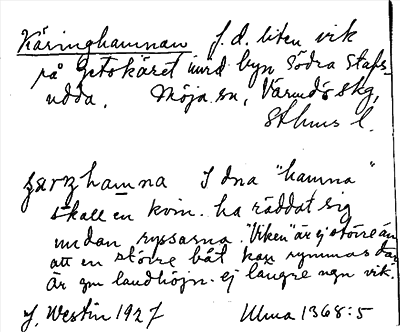 Käringhamnan f.d. liten vik
på Getskäret invid byn Södra Stafs-
udda. Möja sn, Värmdö skg,
Sthms l.
I dna "hamna"
skall en kvin. ha räddat sig
undan ryssarna. "Viken" är ej större än
att en större båt kan rymmas där
är gm landhöjn. ej längre ngn vik.
J. Westin 1927 Ulma 1368:5